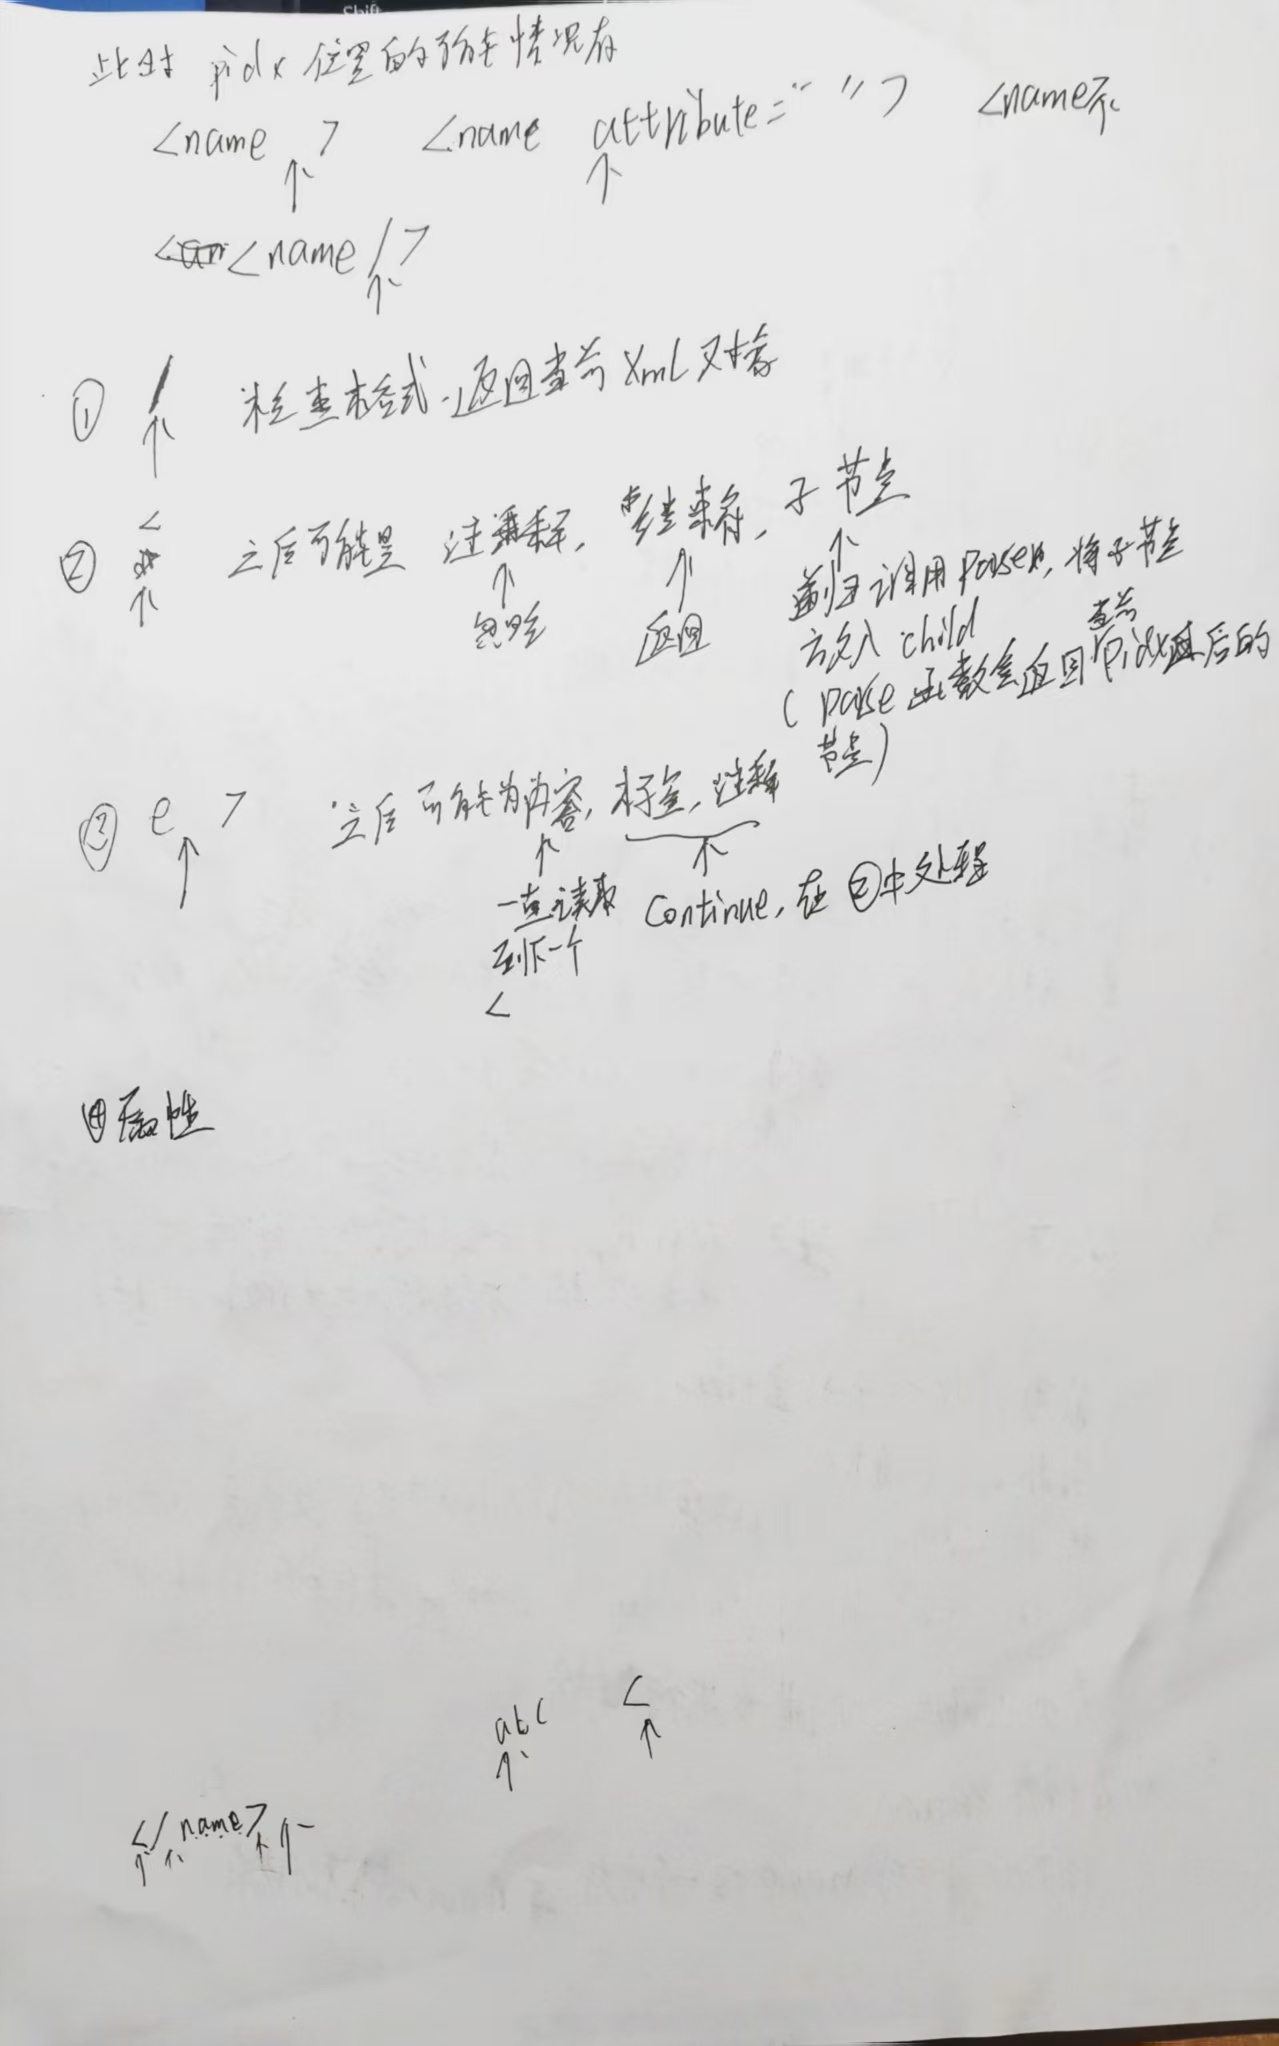 Shift
此时 pidx 位置的可能情况有
<name > <name attribute=“ ”> <name
<name />
① / 检查格式，返回当前 Xml 对象
② < 之后可能是 注释，结束符，子节点
忽略 返回 递归调用 parse，将子节点
放入 child
(parse 函数会返回当前 pidx 后的
节点)
③ e > 之后可能为内容，标签，注释
一直读取 Continue，在②中处理
到下一个
<
④ 属性
abc <
</name>